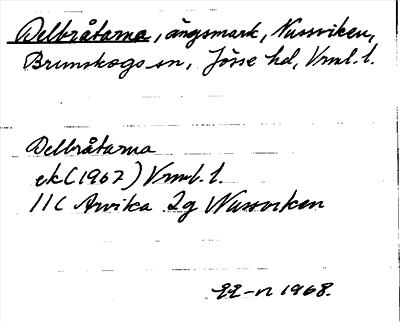 Delbråtarna, ängsmark, Nussviken,
Brunskogs sn, Jösse hd, Vrml. l.
Delbråtarna
ek (1967) Vrml. l.
11C Arvika 2g Nussviken
1968.